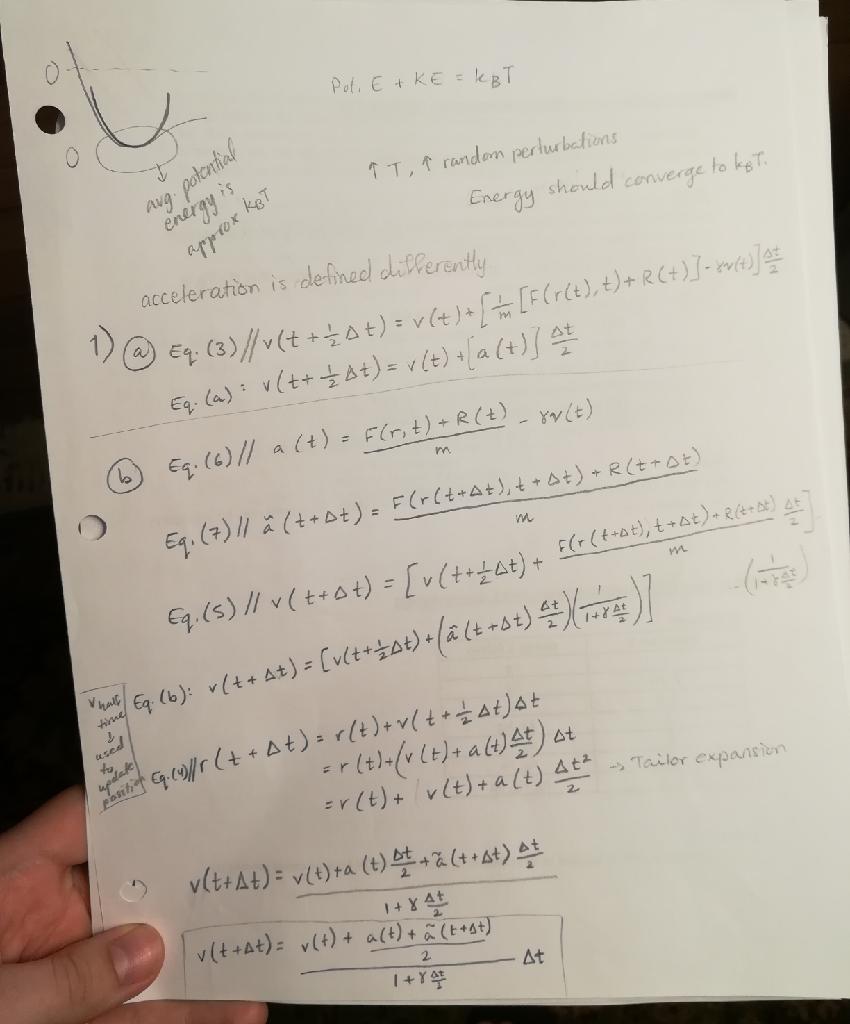 0
Pot. E + KE = k_BT
0
↓
avg. potential
energy is
approx k_BT
↑ T, ↑ random perturbations
Energy should converge to k_BT.
acceleration is defined differently
1) (a) Eq. (3)// v(t + 1/2 Δt) = v(t) + [1/m [F(r(t), t) + R(t)] - γv(t)] Δt/2
Eq. (a): v(t + 1/2 Δt) = v(t) + [a(t)] Δt/2
(b) Eq. (6)// a(t) = (F(r, t) + R(t))/m - γv(t)
Eq. (7)// ã(t+Δt) = (F(r(t+Δt), t+Δt) + R(t+Δt))/m
Eq. (5)// v(t+Δt) = [v(t+1/2 Δt) + (F(r(t+Δt), t+Δt) + R(t+Δt))/m Δt/2]
· (1/(1+γ Δt/2))
Eq. (b): v(t+Δt) = [v(t+1/2 Δt) + (ã(t+Δt) Δt/2)(1/(1+γ Δt/2))]
v half
time
↓
used
to
update
position
Eq. (4)// r(t + Δt) = r(t) + v(t + 1/2 Δt) Δt
= r(t) + (v(t) + a(t) Δt/2) Δt
= r(t) + v(t) + a(t) Δt²/2 → Tailor expansion
v(t+Δt) = (v(t) + a(t) Δt/2 + ã(t+Δt) Δt/2)/(1 + γ Δt/2)
v(t+Δt) = (v(t) + (a(t) + ã(t+Δt))/2)/(1 + γ Δt/2) Δt